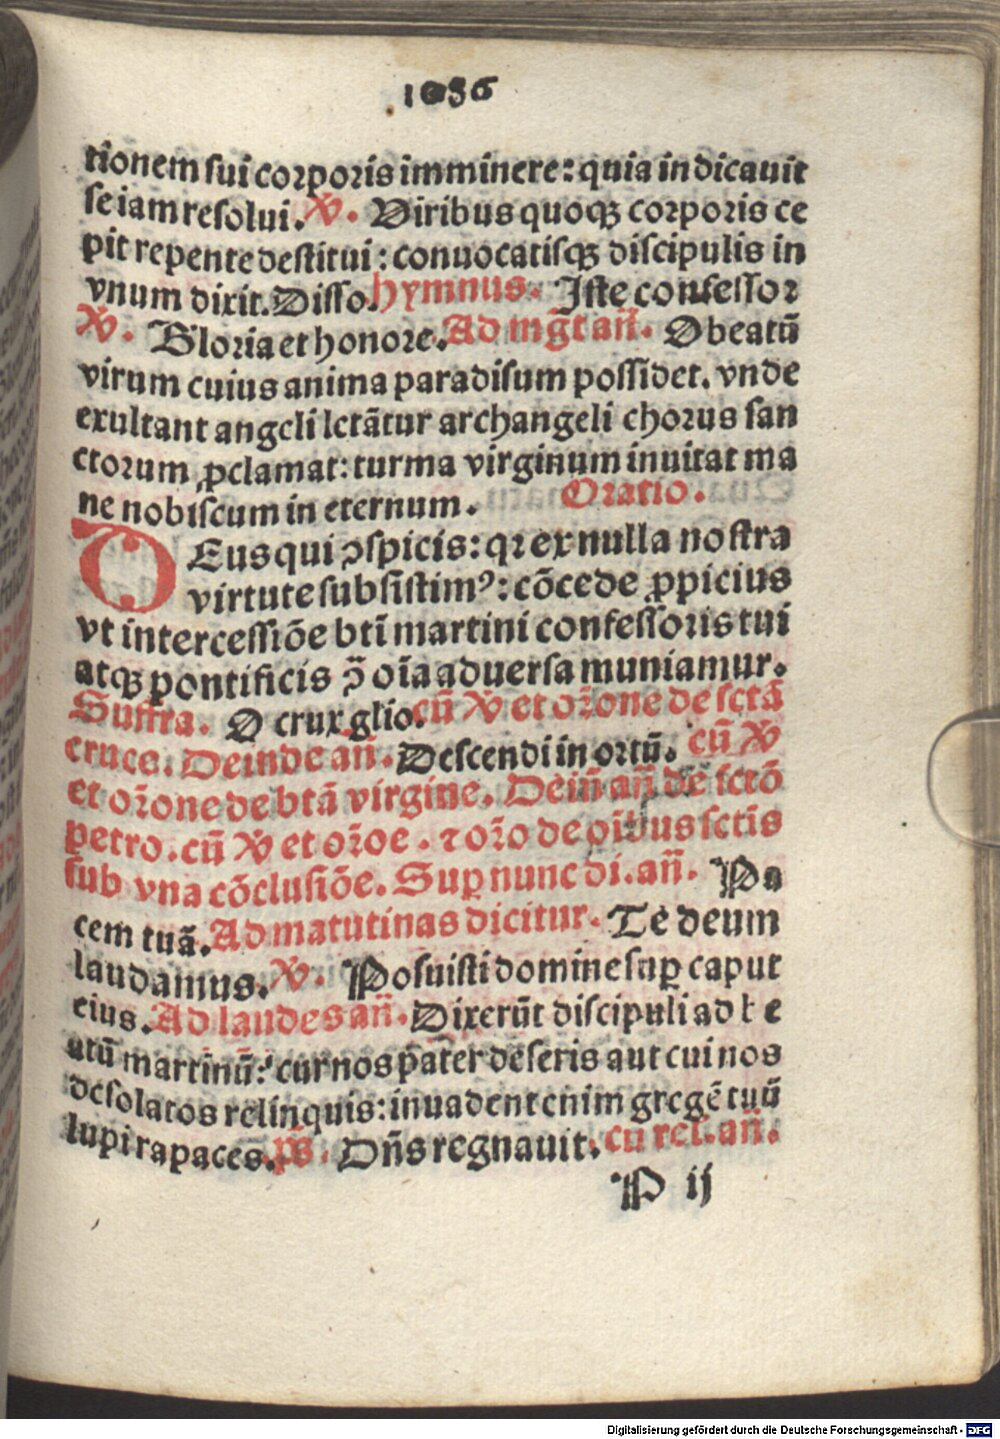 1056
tionem sui corporis imminere: quia indicauit
se iam resolui. ℣. Viribus quoqꝫ corporis ce
pit repente destitui: conuocatisqꝫ discipulis in
vnum dixit. Disso. hymnus. Iste confessor
℣. Gloria et honore. Ad mg̃t añ. O beatū
virum cuius anima paradisum possidet. vnde
exultant angeli letātur archangeli chorus san
ctorum ꝓclamat: turma virginum inuitat ma
ne nobiscum in eternum. Oratio.
DEus qui ꝯspicis: qꝛ ex nulla nostra
virtute subsistimꝰ: cōcede ꝓpicius
vt intercessiōe bti martini confessoris tui
atqꝫ pontificis ꝯ̄ oīa aduersa muniamur.
Suffra. O crux glio. cū ℣ et oꝛ̄one de sctā
cruce. Deinde añ. Descendi in ortū. cū ℣
et oꝛ̄one de btā virgine. Deiñ añ de sctō
petro. cū ℣ et oꝛ̄oe. ⁊ oꝛ̄o de oībus sctis
sub vna cōclusiōe. Suꝑ nunc di. añ. Pa
cem tuā. Ad matutinas dicitur. Te deum
laudamus. ℣. Posuisti domine suꝑ caput
eius. Ad laudes añ. Dixerūt discipuli ad be
atū martinū: cur nos pater deseris aut cui nos
desolatos relinquis: inuadent enim gregē tuū
lupi rapaces. ps. Dn̄s regnauit. cū rel. añ.
P ij
Digitalisierung gefördert durch die Deutsche Forschungsgemeinschaft - DFG